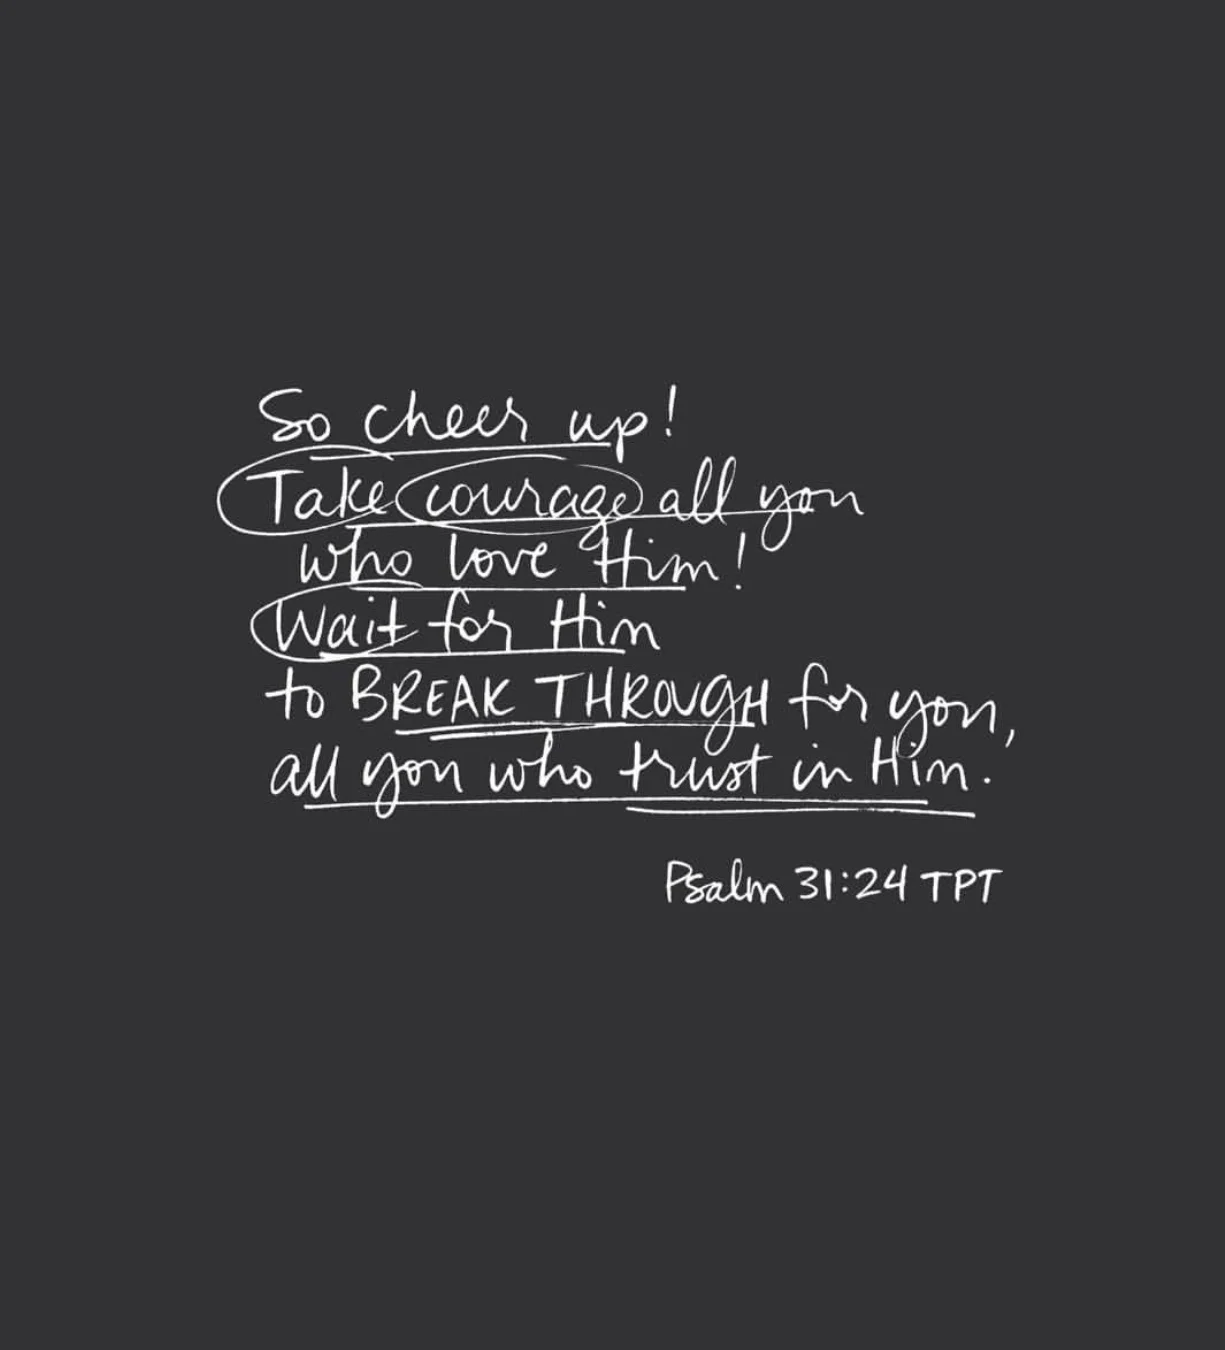 So cheer up!
Take courage all you
who love Him!
Wait for Him
to BREAK THROUGH for you,
all you who trust in Him.
Psalm 31:24 TPT